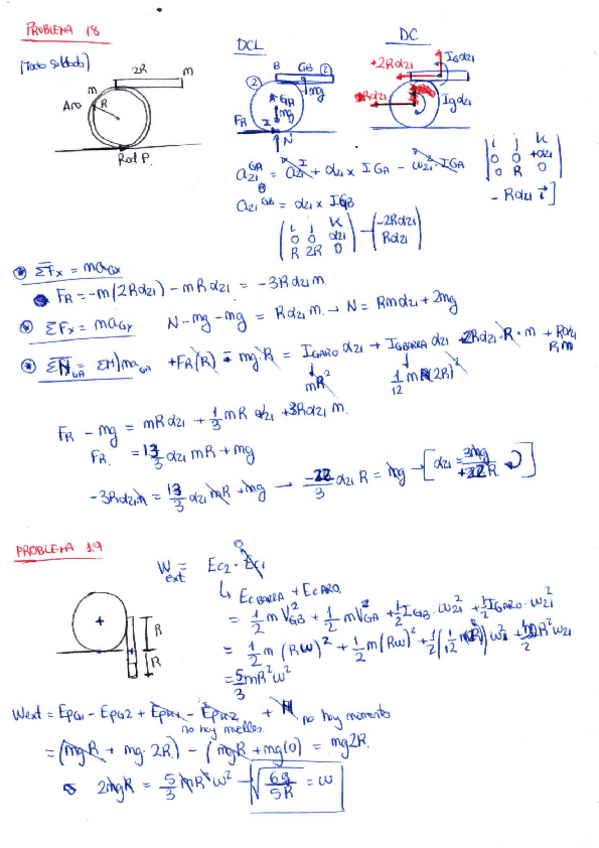 PROBLEMA 18
(Todo soldado)
2R
m
m
Aro
R
Rod P.
DCL
B GB 2
2
GA
mg
mg
FR
I
N
DC
+2Rα21
IGα21
Rα21
IGα21
a21^GA = a21^I + α21 x IGA - ω21² · IGA
i j k
0 0 +α21
0 R 0
- Rα21 i
a21^GB = α21 x IGB
i j k
0 0 α21
R 2R 0
-2Rα21
Rα21
* ΣFx = maGx
FR = -m(2Rα21) - mRα21 = -3Rα21m.
* ΣFx = maGy N - mg - mg = Rα21m. → N = Rmα21 + 2mg
+FR(R) - mg·R = IGARO α21 + IGBARRA α21 + 2Rα21·R·m + Rα21 Rm
mR²
1/12 m(2R)²
FR - mg = mRα21 + 1/3 mR α21 + 3Rα21m.
FR = 13/3 α21 mR + mg
-3Rα21m = 13/3 α21 mR + mg → -22/3 α21 R = mg → [α21 = 3mg/+22R]
PROBLEMA 19
R
R
Wext = Ec2 - Ec1 0
EcBARRA + EcARO.
= 1/2 mVGB² + 1/2 mVGA² + 1/2 IGB · ω21² + 1/2 IGARO · ω21²
= 1/2 m (Rω)² + 1/2 m(Rω)² + 1/2 (1/12 m(2R)²) ω² + 1/2 mR²ω21²
= 5/3 mR²ω²
Wext = EpG1 - EpG2 + EpM1 - EpM2 + M no hay momento
no hay muelles.
= (mgR + mg·2R) - (mgR + mg(0) = mg2R.
2mgR = 5/3 mR²ω² → √6g/5R = ω